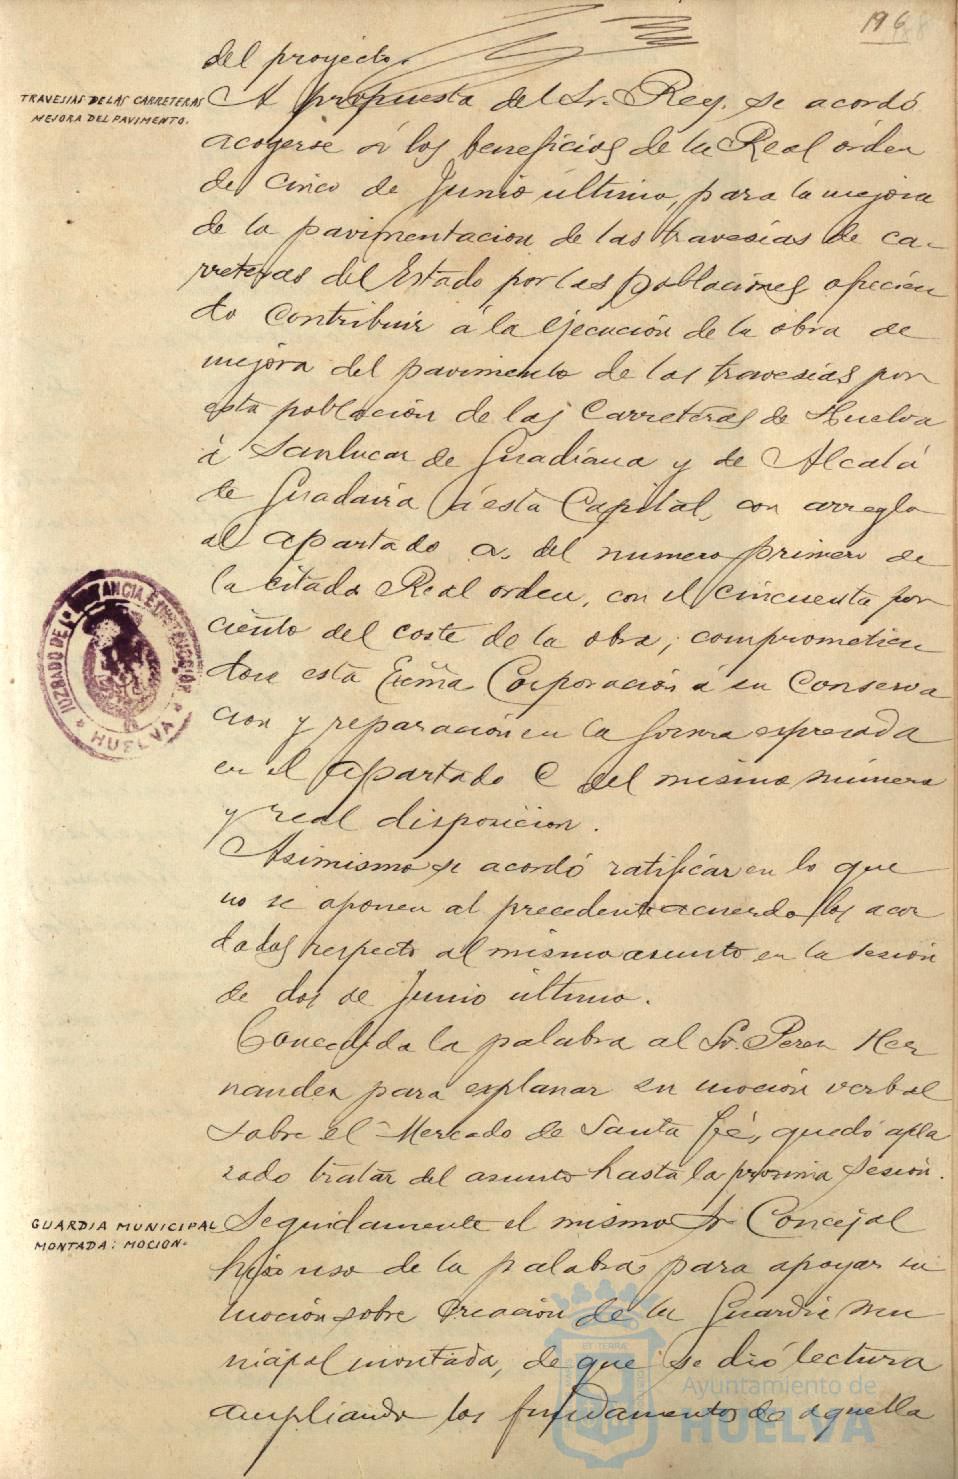 196
del proyecto.
TRAVESIAS DE LAS CARRETERAS
MEJORA DEL PAVIMENTO.
A propuesta del Sr. Rey, se acordó
acogerse á los beneficios de la Real órden
de cinco de Junio último, para la mejora
de la pavimentacion de las travesías de ca-
rreteras del Estado por las poblaciones ofrecien
do contribuir á la ejecución de la obra de
mejora del pavimento de las travesías por
esta población de las Carreteras de Huelva
á Sanlucar de Guadiana y de Alcalá
de Guadaira á esta Capital, con arreglo
al apartado a. del numero primero de
la citada Real orden, con el cincuenta por
ciento del coste de la obra; comprometien
dose esta Excma Corporación á su conserva
cion y reparación en la forma expresada
en el apartado C del mismo número
y real disposicion.
Asimismo se acordó ratificar en lo que
no se oponen al precedente acuerdo los acor
dados respecto al mismo asunto en la sesión
de dos de Junio último.
Concedida la palabra al Sr. Perez Her
nandez para explanar su moción verbal
sobre el Mercado de Santa Fé, quedó apla
zado tratar del asunto hasta la proxima sesión.
GUARDIA MUNICIPAL
MONTADA: MOCION.
Seguidamente el mismo Sr Concejal
hizo uso de la palabra para apoyar su
moción sobre creación de la Guardia mu
nicipal montada, de que se dió lectura
ampliando los fundamentos de aquella
JUZGADO DE 1ª INSTANCIA E INSTRUCCIÓN
* HUELVA *
Ayuntamiento de
HUELVA